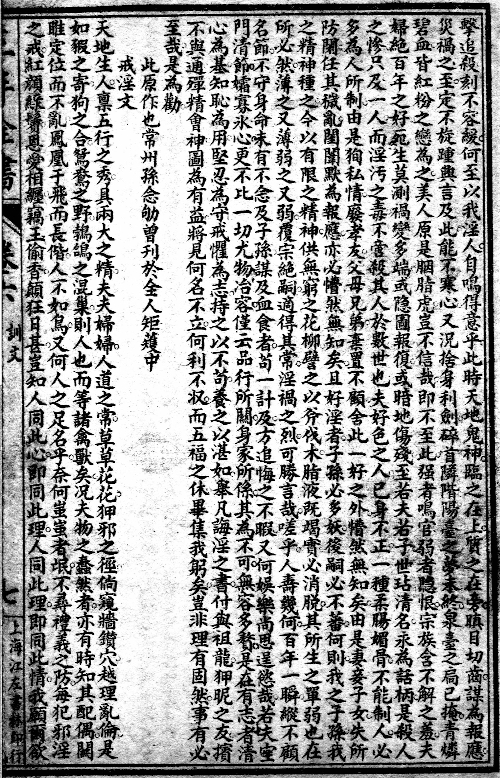 擊追殺刻不容緩何至以我淫人自鳴得意乎此時天地鬼神臨之在上質之在旁瞋目切齒謀為報應
災禍之至定不旋踵興言及此能不寒心又況捨身利劍碎首隨階陽臺之夢未終泉臺之扃已掩青燐
碧血皆紅粉之戀為之美人原是胭脂虎豈不信哉即不至此强者鳴官弱者隱恨宗族含不解之羞夫
婦絕百年之好死生莫測禍變多端或隱圖報復或暗地傷殘至若夫若子世玷清名永為話柄是殺人
之慘只及一人而淫污之毒不啻殺其人於數世也夫好色之人己身不正一種柔腸媚骨不能制人必
多為人所制由是狥私情廢孝友父母兄弟棄置不顧舍此一好之外懵然無知矣由是妻妾子女失所
防閑任其穢亂閨閫默為報應亦必懵然無知矣且好淫者子孫必多妖後嗣必不蕃何則我之子孫我
之精神種之今以有限之精神供無窮之花柳譬之以斧伐木脂液既竭實必消脫其所生之單弱也在
所必然薄之又薄弱之又弱覆宗絕嗣適得其常淫禍之烈可勝言哉嗟乎人壽幾何百年一瞬縱不顧
名節不守身命未有不念及子孫謀及血食者苟一計及方追悔之不暇又何娛樂尚思逞慾哉若夫空
門清節孀寡氷心更不比一切尤物冶容僅云品行所關身家所係其為不可無容多贅是在有志者清
心為基知恥為用堅忍為守戒懼為志持之以不苟養之以湛如舉凡誨淫之書付與祖龍狎昵之友擯
不與通殫精會神圖為有益將見何名不立何利不收而五福之休畢集我躬矣豈非理有固然事有必
至哉是為勸
此原作也常州孫念劬曾刊於全人矩矱中
戒淫文
天地生人稟五行之秀具兩大之精夫夫婦婦人道之常草草花花狎邪之徑倘窺牆鑽穴越理亂倫是
如猳之寄狗之合鴛鴦之野鶉鵲之混巢則人也而等諸禽獸矣況夫物之蠢然者亦有時知其配偶關
雎定位而不亂鳳凰于飛而長偕人不如鳥又何人之足名乎奈何蚩蚩者氓不尋禮義之防每犯邪淫
之戒紅顏綠鬢恩愛相纏竊玉偷香顛狂日甚豈知人同此心即同此理人同此理即同此情我願爾欲
訓文
七
上海江左書林印行